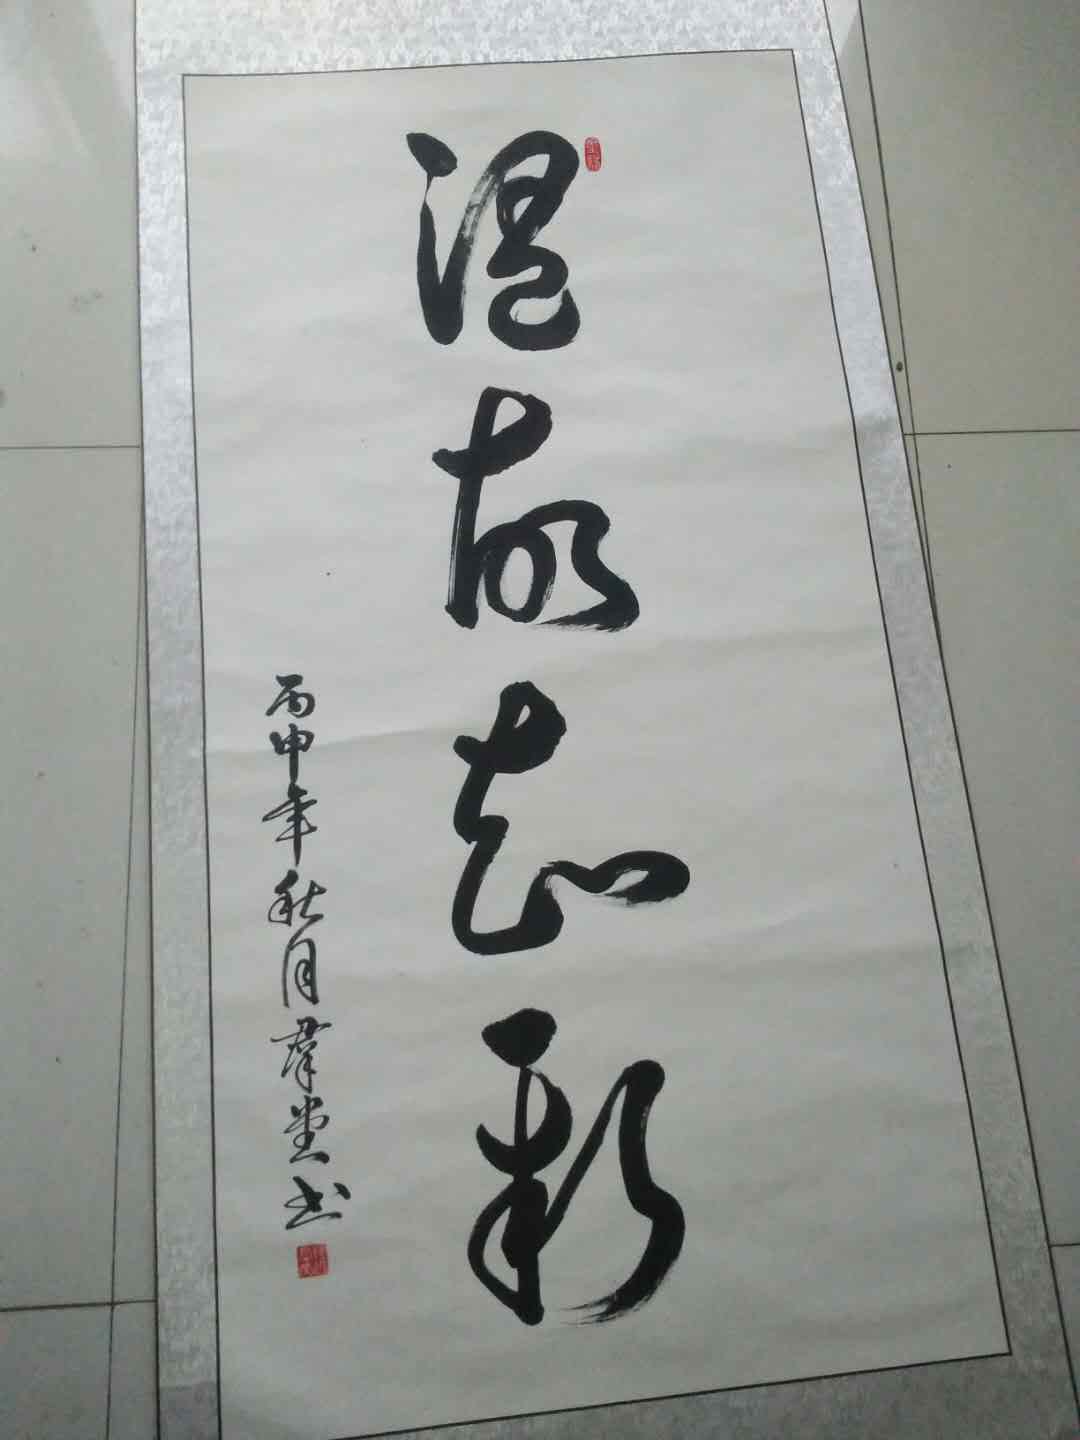 温故知新
丙申年秋月群堂书